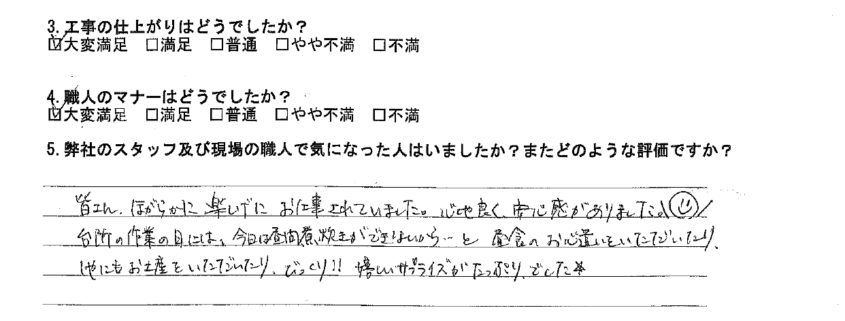 3. 工事の仕上がりはどうでしたか？
☑大変満足 □満足 □普通 □やや不満 □不満
4. 職人のマナーはどうでしたか？
☑大変満足 □満足 □普通 □やや不満 □不満
5. 弊社のスタッフ及び現場の職人で気になった人はいましたか？またどのような評価ですか？
皆さん、ほがらかに楽しげにお仕事されていました。心地良く、安心感がありました。
台所の作業の日には、今日は昼間煮炊きができないから…と昼食のお心遣いをいただいたり、
他にもお土産をいただいたり、びっくり!! 嬉しいサプライズがたっぷりでした